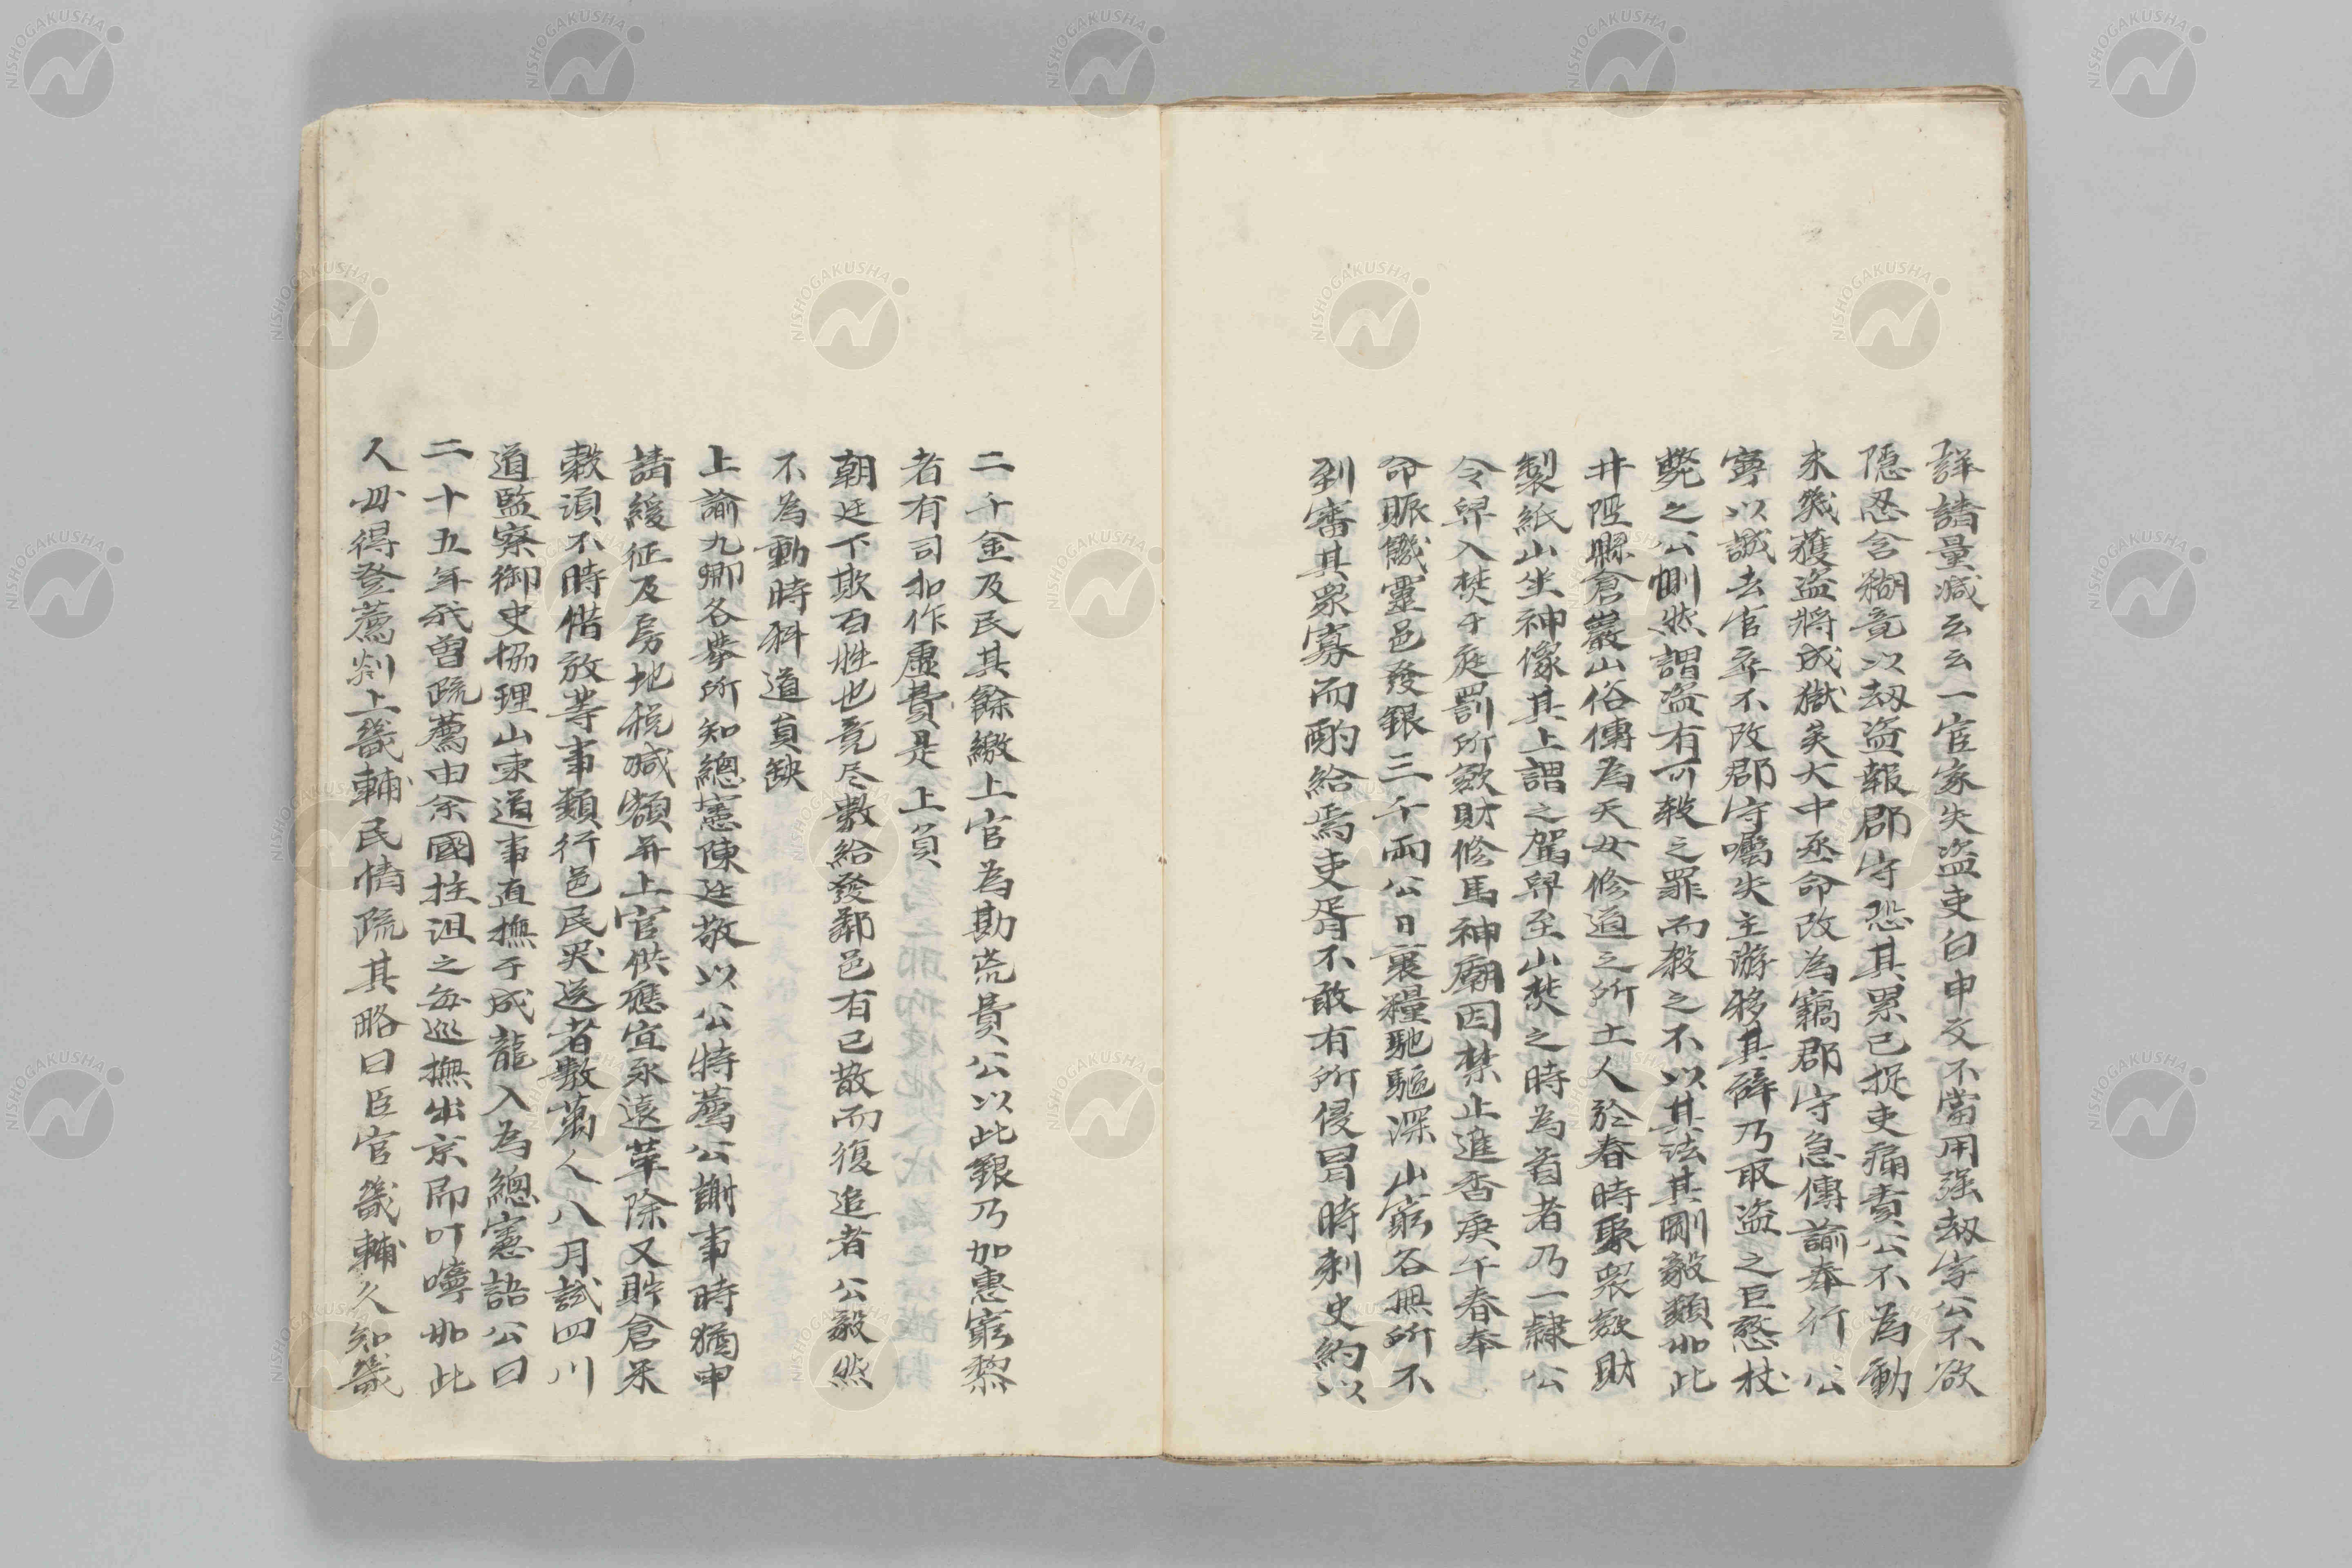 詳請量減云云一宦家失盗吏白申文不當用强刼字公不欲
隠忍含糊竟以刼盗報郡守恐其累己捉吏痛責公不為動
未幾獲盗將成獄矣大中丞命改為竊郡守急傳諭奉行公
寧以誠去官卒不改郡守囑失主游移其辭乃取盗之巨憝杖
斃之公惻然謂盗有可殺之罪而殺之不以其法其剛毅類如此
井陘縣倉巖山俗傳為天女修道之所土人於春時聚衆斂財
製紙山坐神像其上謂之駕舁至山焚之時為首者乃一隷公
令舁入焚于庭罰所斂財修馬神廟因禁止進香庚午春奉
命賑饑靈邑發銀三千兩公日裹糧馳驅深山窮谷無所不
到審其衆寡而酌給焉吏胥不敢有所侵冒時刺史約以
二千金及民其餘繳上官為勘荒費公以此銀乃加惠窮黎
者有司扣作虛費是上負
朝廷下欺百姓也竟尽數給發鄰邑有已散而復追者公毅然
不為動時科道員缺
上諭九卿各舉所知總憲陳廷敬以公特薦公謝事時猶申
請緩征及房地税減額并上官供應宜永遠革除又貯倉米
穀須不時借放等事類行邑民哭送者數萬人八月試四川
道監察御史協理山東道事直撫于成龍入為總憲語公曰
二十五年我曽疏薦由余國柱沮之每巡撫出京即叮嚀如此
人毋得登薦剡上畿輔民情疏其略曰臣官畿輔久知畿
NISHOGAKUSHA